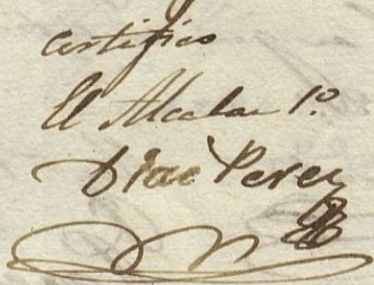 certifico
El Alcalde 1º
Diaz Perez